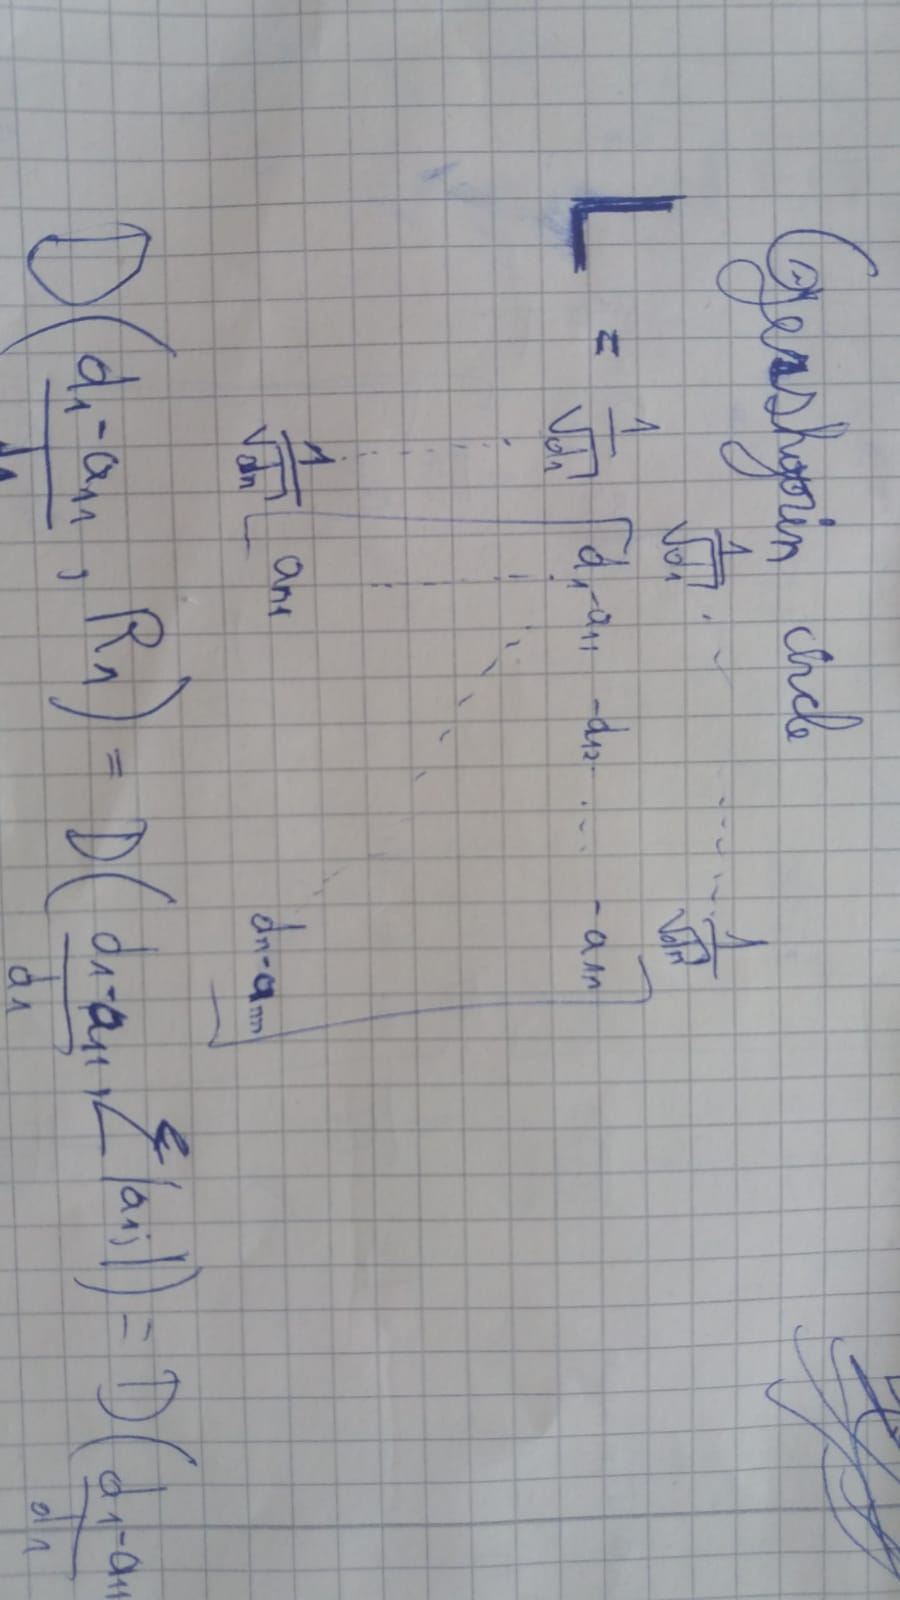 Gershgorin circle
1/√d1 . - ----- 1/√dn
L = 1/√d1 [ d1-a11 -d12 ..... -a1n ]
1/√dn an1 dn-ann
D( (d1-a11)/d1 , R1 ) = D( (d1-a11)/d1 , Σ|a1j| ) = D( (d1-a11)/d1